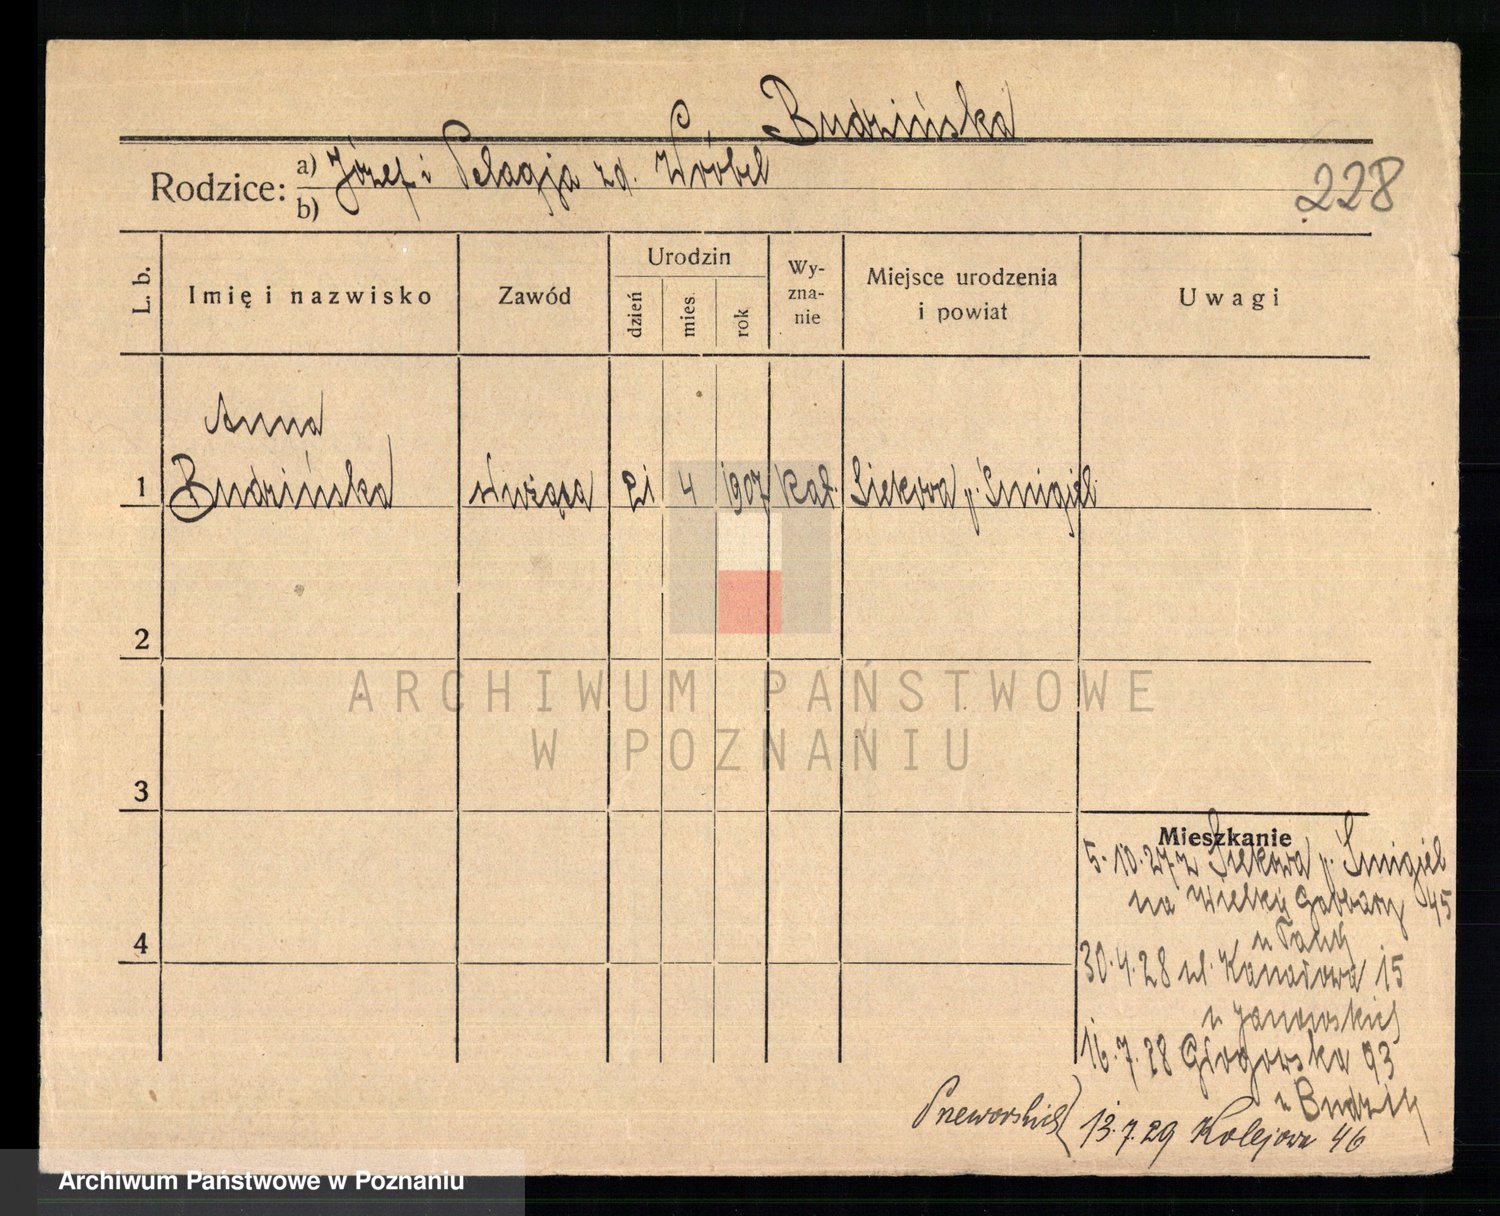 Budzińska
Rodzice: a) Józef i Pelagja zd. Wróbel
b)
228
L. b.
Imię i nazwisko
Zawód
Urodzin
dzień
mies.
rok
Wy-
zna-
nie
Miejsce urodzenia
i powiat
Uwagi
Anna
1 Budzińska służąca 21 4 1907 kat. Siekowa p. Śmigiel
2
ARCHIWUM PAŃSTWOWE
W POZNANIU
3
Mieszkanie
5.10.27 z Siekowa p. Śmigiel
na Wielkie Garbary 45
4
30.4.28 ul. Kanałowa 15
u Janowskich
16.7.28 Głogowska 93
u
Pneworskich 13.7.29 Kolejowa 46
Archiwum Państwowe w Poznaniu